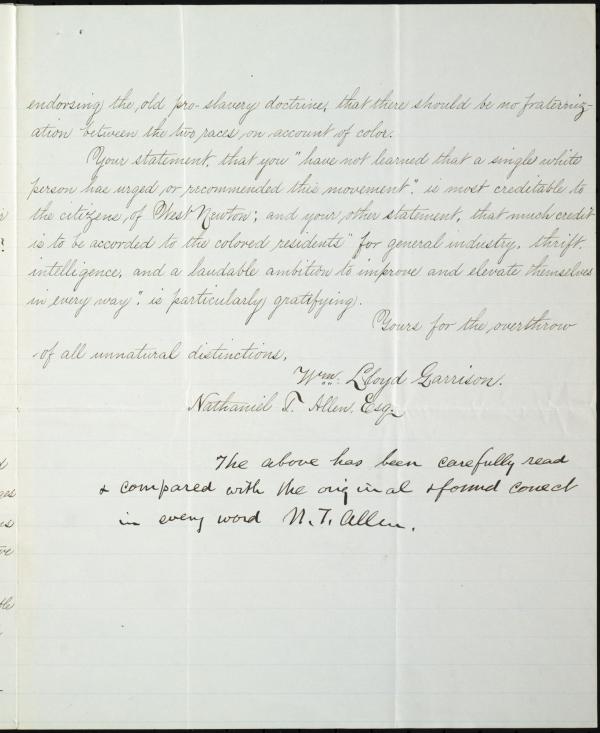 endorsing the old pro-slavery doctrine, that there should be no fraterniz-
ation between the two races, on account of color.
Your statement, that you "have not learned that a single white
person has urged or recommended this movement", is most creditable to
the citizens, of West Newton; and your other statement, that much credit
is to be accorded to the colored residents "for general industry, thrift,
intelligence, and a laudable ambition to improve and elevate themselves
in every way", is particularly gratifying.
Yours for the overthrow
of all unnatural distinctions,
Wm. Lloyd Garrison.
Nathaniel T. Allen, Esq.
The above has been carefully read
& compared with the original & found correct
in every word N. T. Allen.